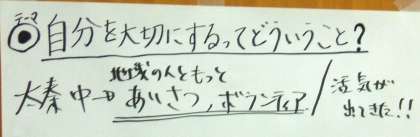 テーマ
自分を大切にするってどういうこと?
地域の人ともっと
太秦中→あいさつ、ボランティア/活気が
出てきた!!